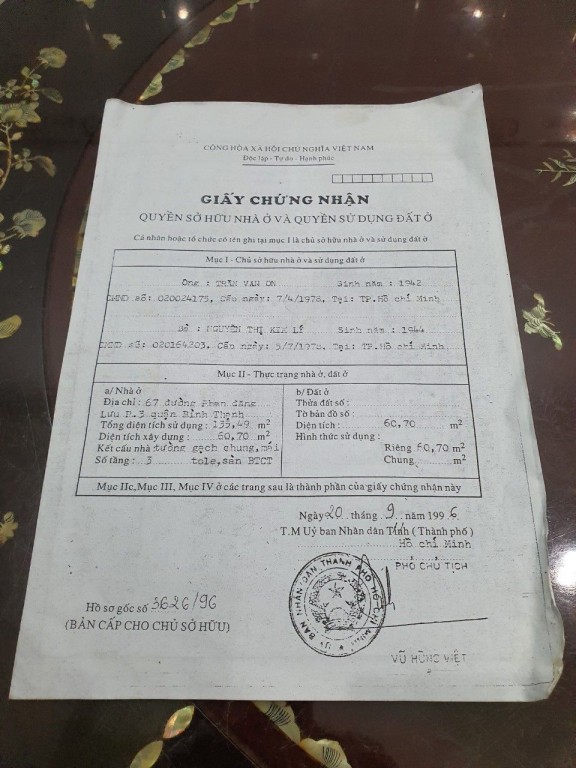 CỘNG HÒA XÃ HỘI CHỦ NGHĨA VIỆT NAM
Độc lập - Tự do - Hạnh phúc
GIẤY CHỨNG NHẬN
QUYỀN SỞ HỮU NHÀ Ở VÀ QUYỀN SỬ DỤNG ĐẤT Ở
Cá nhân hoặc tổ chức có tên ghi tại mục I là chủ sở hữu nhà ở và sử dụng đất ở
Mục I - Chủ sở hữu nhà ở và sử dụng đất ở
Ông : TRẦN VAN ON Sinh năm : 1942
CMND số: 020024175, Cấp ngày: 7/4/1978, Tại: TP.Hồ chí Minh
Bà : NGUYỄN THỊ KIM LÊ Sinh năm : 1944
CMND số: 020164203, Cấp ngày: 5/7/1978, Tại: TP.Hồ chí Minh
Mục II - Thực trạng nhà ở, đất ở
a/ Nhà ở
Địa chỉ : 67 đường Phan đăng
Lưu P.3 quận Bình Thạnh
Tổng diện tích sử dụng : 135,49 m2
Diện tích xây dựng : 60,70 m2
Kết cấu nhà tường gạch chung, mái
Số tầng : 3 tole, sàn BTCT
b/ Đất ở
Thửa đất số :
Tờ bản đồ số :
Diện tích : 60,70 m2
Hình thức sử dụng :
Riêng 60,70 m2
Chung m2
Mục IIc, Mục III, Mục IV ở các trang sau là thành phần của giấy chứng nhận này
Ngày 20 tháng 9 năm 1996
T.M Uỷ ban Nhân dân Tỉnh ( Thành phố )
Hồ chí Minh
PHÓ CHỦ TỊCH
ỦY BAN NHÂN DÂN THÀNH PHỐ HỒ CHÍ MINH
Hồ sơ gốc số 3626/96
(BẢN CẤP CHO CHỦ SỞ HỮU)
VŨ HÙNG VIỆT